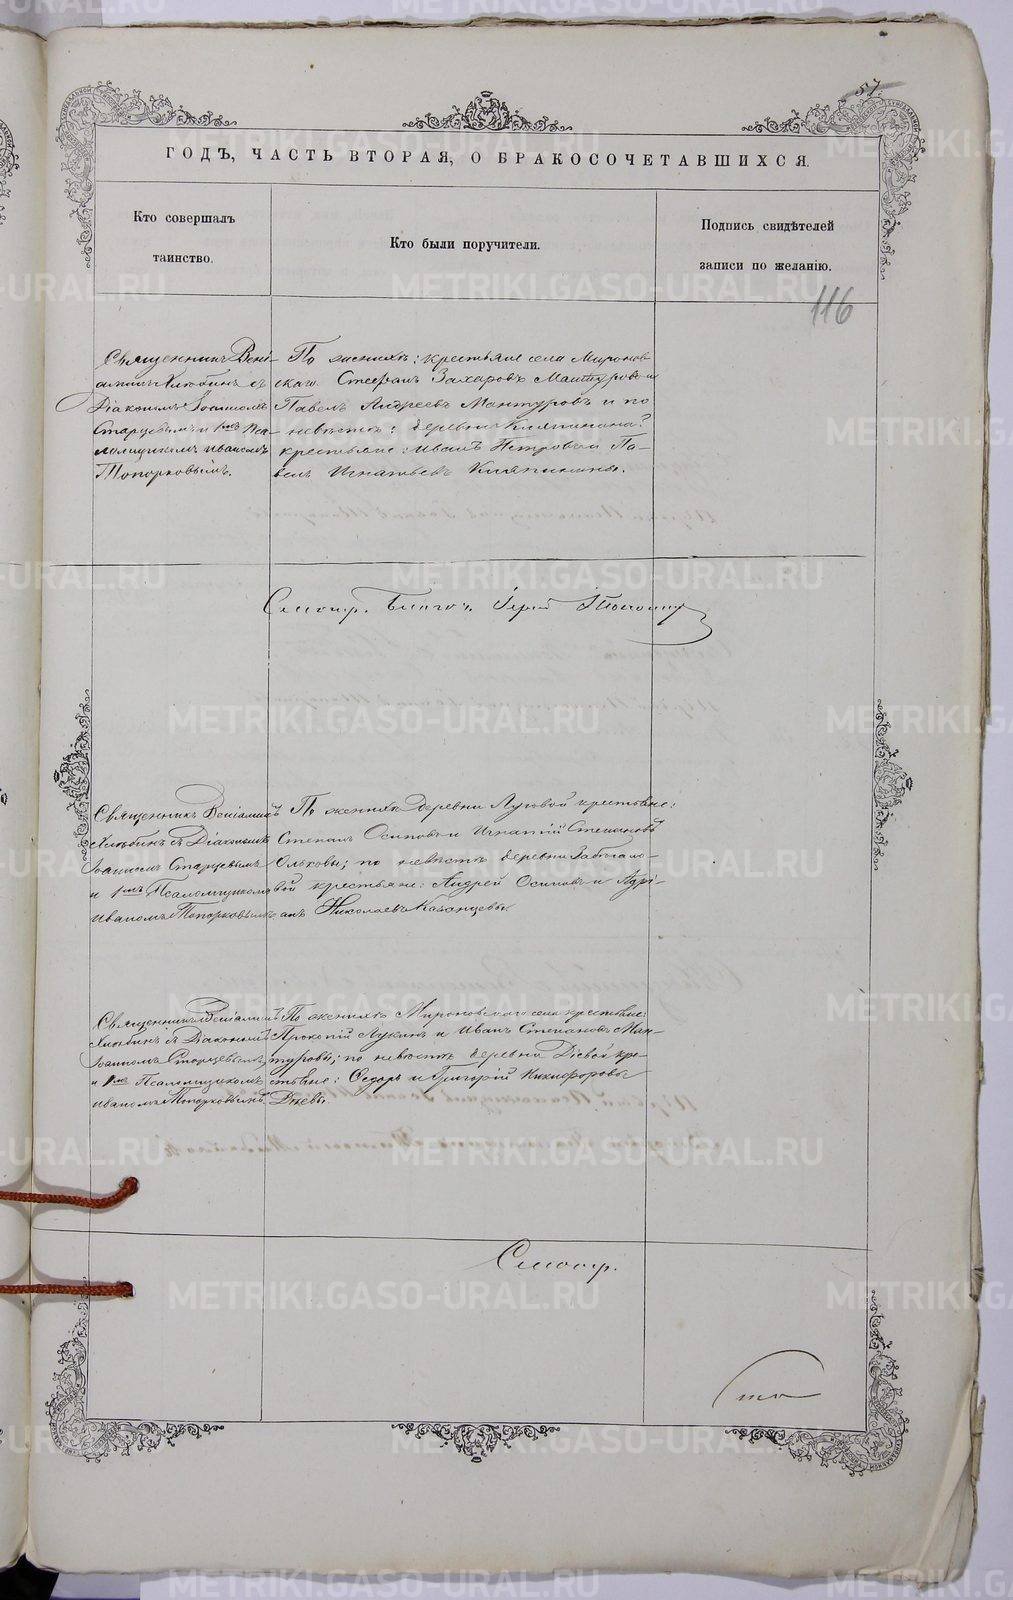 57.
ГОДЪ, ЧАСТЬ ВТОРАЯ, О БРАКОСОЧЕТАВШИХСЯ.
Кто совершалъ
таинство.
Кто были поручители.
Подпись свидѣтелей
записи по желанію.
116
Священникъ Вені-
аминъ Хлюбинъ съ
Діакономъ Іоанномъ
Старцевымъ и 1мъ Пса-
ломщикомъ Иваномъ
Топорковымъ.
По женихѣ: крестьяне села Миронов-
скаго Стефанъ Захаровъ Мантуровъ и
Павелъ Андреевъ Мантуровъ и по
невѣстѣ: деревни Кляпинина?
крестьяне: Иванъ Петровъ и Па-
велъ Игнатьевъ Кляпинины.
Смотр. Благоч. Іерей
Священникъ Веніаминъ
Хлюбинъ съ Діакономъ
Іоанномъ Старцевымъ
и 1мъ Псаломщикомъ
Иваномъ Топорковымъ
По женихѣ деревни Луговой крестьяне:
Степанъ Осиповъ и Игнатій Степановъ
Ольховы; по невѣстѣ деревни
крестьяне: Андрей Осиповъ и Адрі-
анъ Николаевъ Казанцевы.
Священникъ Веніаминъ
Хлюбинъ съ Діакономъ
Іоанномъ Старцевымъ
и 1мъ Псаломщикомъ
Иваномъ Топорковымъ
По женихѣ Мироновскаго села крестьяне:
Прокопій Лукинъ и Иванъ Степановъ Ман-
туровы; по невѣстѣ деревни Дѣевой кре-
стьяне: Ѳедоръ и Григорій Никифоровы
Дѣевы.
Смотр.
METRIKI.GASO-URAL.RU